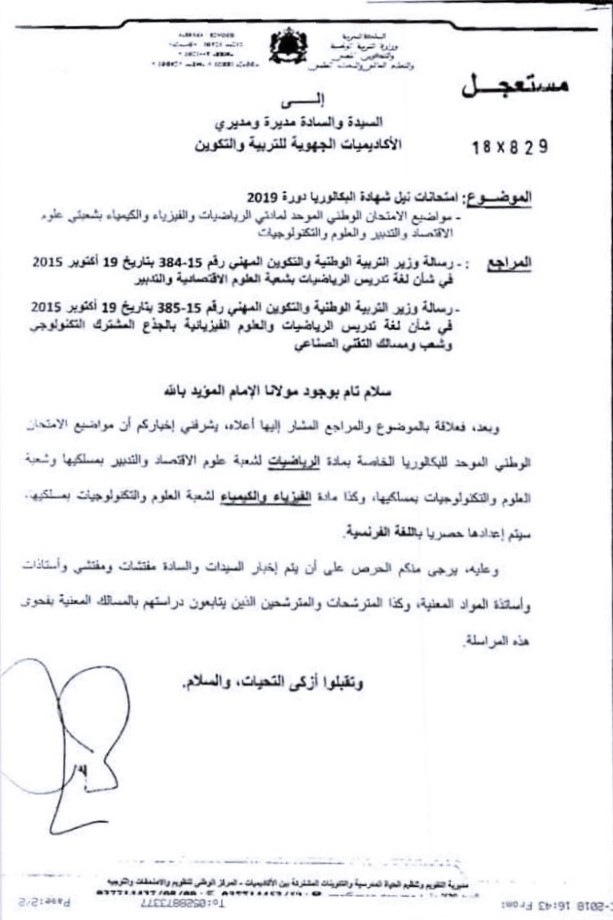 المملكة المغربية
وزارة التربية الوطنية
والتكوين المهني
والتعليم العالي والبحث العلمي
مستعجل
18 X 829
إلى
السيدة والسادة مديرة ومديري
الأكاديميات الجهوية للتربية والتكوين
الموضوع: امتحانات نيل شهادة البكالوريا دورة 2019
- مواضيع الامتحان الوطني الموحد لمادتي الرياضيات والفيزياء والكيمياء بشعبتي علوم
الاقتصاد والتدبير والعلوم والتكنولوجيات
المراجع : - رسالة وزير التربية الوطنية والتكوين المهني رقم 15-384 بتاريخ 19 أكتوبر 2015
في شأن لغة تدريس الرياضيات بشعبة العلوم الاقتصادية والتدبير
- رسالة وزير التربية الوطنية والتكوين المهني رقم 15-385 بتاريخ 19 أكتوبر 2015
في شأن لغة تدريس الرياضيات والعلوم الفيزيائية بالجذع المشترك التكنولوجي
وشعب ومسالك التقني الصناعي
سلام تام بوجود مولانا الإمام المؤيد بالله
وبعد، فعلاقة بالموضوع والمراجع المشار إليها أعلاه، يشرفني إخباركم أن مواضيع الامتحان
الوطني الموحد للبكالوريا الخاصة بمادة الرياضيات لشعبة علوم الاقتصاد والتدبير بمسلكيها وشعبة
العلوم والتكنولوجيات بمسلكيها، وكذا مادة الفيزياء والكيمياء لشعبة العلوم والتكنولوجيات بمسلكيها،
سيتم إعدادها حصريا باللغة الفرنسية.
وعليه، يرجى منكم الحرص على أن يتم إخبار السيدات والسادة مفتشات ومفتشي وأستاذات
وأساتذة المواد المعنية، وكذا المترشحات والمترشحين الذين يتابعون دراستهم بالمسالك المعنية بفحوى
هذه المراسلة.
وتقبلوا أزكى التحيات، والسلام.
مديرية التقويم وتنظيم الحياة المدرسية والتكوينات المشتركة بين الأكاديميات - المركز الوطني للتقويم والامتحانات والتوجيه
-2018 16:43 From: To:0528873377 Page:2/2